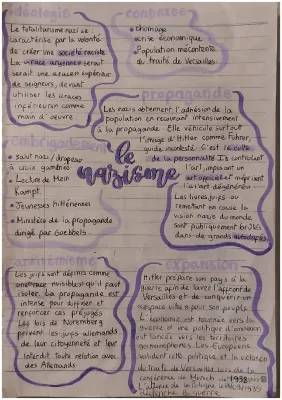 idéologie
Le totalitarisme nazi se
caractérise par la volonté
de créer une société raciste
La race aryenne serait
serait une race supérieur
de seigneurs, devant
utiliser les races
inférieur comme
main d'oeuvre
contexte
chômage
crise économique
Population mécontente
du traité de Versailles
propagande
Les nazis obtiennent l'adhésion de la
population en recourant intensivement
à la propagande. Elle véhicule surtout
l'image d'Hitler comme Führer,
guide incontesté. C'est le culte
de la personnalité. Ils contrôlent
l'art, imposant un
art officiel et méprisant
l'art dégénéré
Les livres juifs ou
remettant en cause la
vision nazie du monde
sont publiquement brûlés
dans de grands autodafés
embrigadement
• salut nazi / drapeau
à croix gammée
• Lecture de Mein
Kampf
• Jeunesses hitlériennes
• Ministère de la propagande
dirigé par Goebbels
le
nazisme
antisémitisme
Les juifs sont définis comme
une race nuisible qu'il faut
isoler. La propagande est
intense pour diffuser et
renforcer ces préjugés
Les lois de Nuremberg
privent les juifs allemands
de leur citoyenneté et leur
interdit toute relation avec
des Allemands
expansion
Hitler prépare son pays à la
guerre afin de laver l'affront de
Versailles et de conquérir un
espace vital pour son peuple.
L'économie est tournée vers la
guerre et une politique d'annexion
est lancée vers les territoires
germanophones. Les Européens
valident cette politique et la violation
du traité de Versailles lors de la
conférence de Munich de 1938
L'attaque de la Pologne le 1939
déclenche la guerre